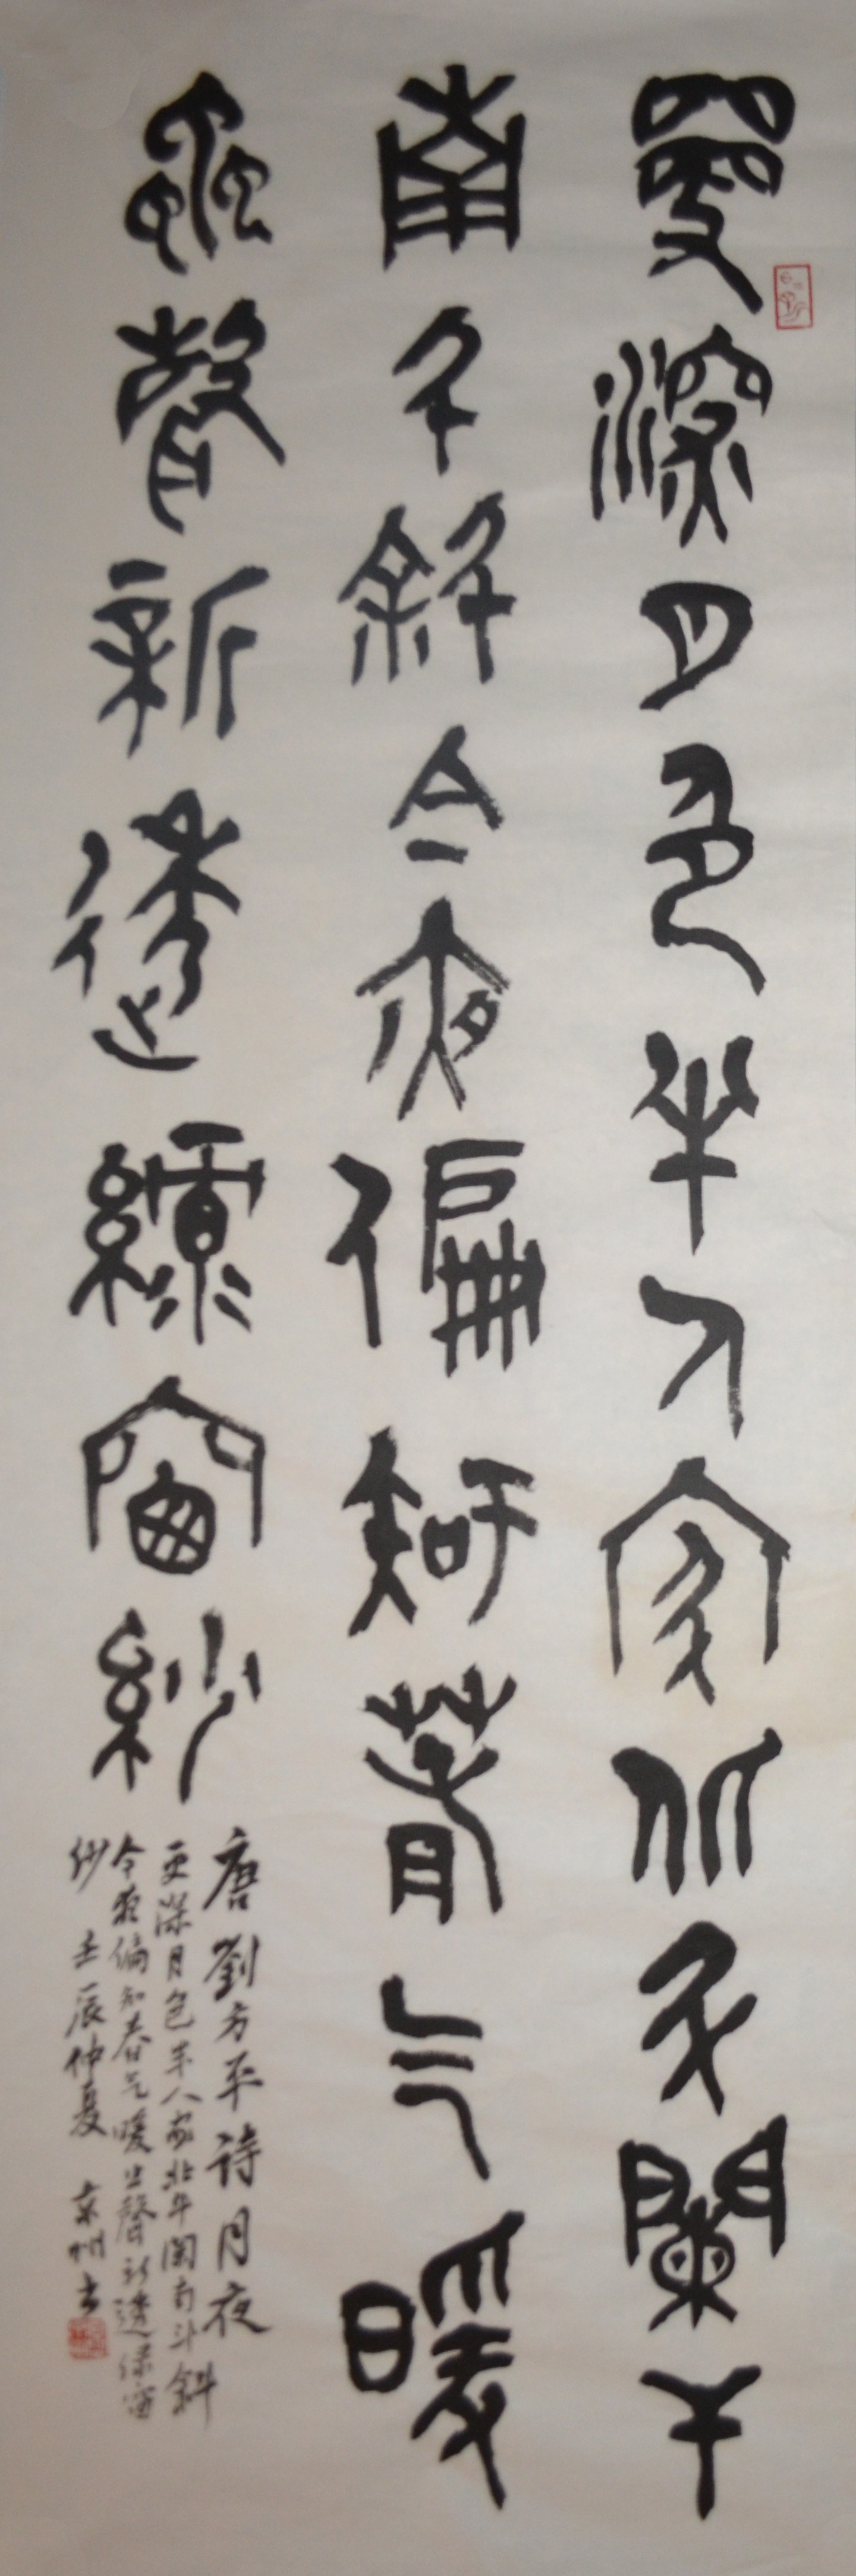 更深月色半人家北斗闌干
南斗斜今夜偏知春气暖
蟲聲新透綠窗紗
唐劉方平詩月夜
更深月色半人家北斗闌南斗斜
今夜偏知春气暖虫聲新透綠窗
紗 壬辰仲夏 書